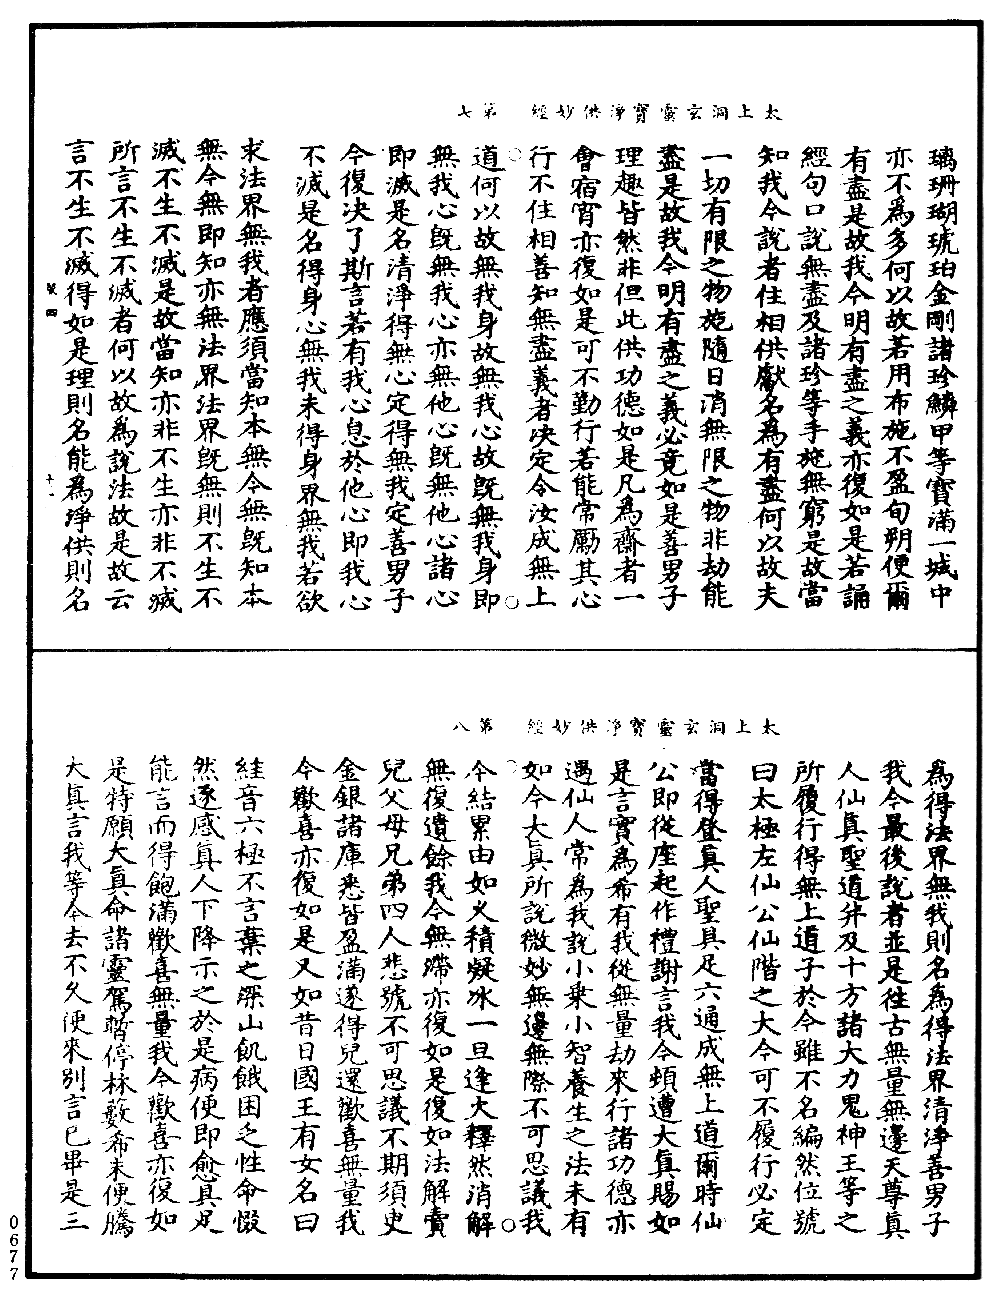 太上洞玄靈寶淨供妙經　第七
璃珊瑚琥珀金剛諸珍鱗甲等寶滿一城中
亦不為多何以故若用布施不盈旬朔便爾
有盡是故我今明有盡之義亦復如是若誦
經句口說無盡及諸珍等手施無窮是故當
知我今說者住相供獻名為有盡何以故夫
一切有限之物施隨日消無限之物非劫能
盡是故我今明有盡之義必竟如是善男子
理趣皆然非但此供功德如是凡為齋者一
會宿宵亦復如是可不勤行若能常勵其心
行不住相善知無盡義者決定令汝成無上
道何以故無我身故無我心故既無我身即
無我心既無我心亦無他心既無他心諸心
即滅是名清淨得無心定得無我定善男子
今復決了斯言若有我心息於他心即我心
不滅是名得身心無我未得身界無我若欲
求法界無我者應須當知本無今無既知本
無今無即知亦無法界法界既無則不生不
滅不生不滅是故當知亦非不生亦非不滅
所言不生不滅者何以故為說法故是故云
言不生不滅得如是理則名能為淨供則名
號四
十一
太上洞玄靈寶淨供妙經　第八
為得法界無我則名為得法界清淨善男子
我今最後說者並是往古無量無邊天尊真
人仙真聖道并及十方諸大力鬼神王等之
所履行得無上道子於今雖不名編然位號
曰太極左仙公仙階之大今可不履行必定
當得登真人聖具足六通成無上道爾時仙
公即從座起作禮謝言我今頓遭大真賜如
是言實為希有我從無量劫來行諸功德亦
遇仙人常為我說小乘小智養生之法未有
如今大真所說微妙無邊無際不可思議我
今結累由如火積凝冰一旦逢大釋然消解
無復遺餘我今無滯亦復如是復如法解賣
兒父母兄弟四人悲號不可思議不期須臾
金銀諸庫悉皆盈滿遂得兒還歡喜無量我
今歡喜亦復如是又如昔日國王有女名曰
絓音六極不言棄之深山飢餓困乏性命惙
然逐感真人下降示之於是病便即愈具足
能言而得飽滿歡喜無量我今歡喜亦復如
是特願大真命諸靈駕暫停林藪希未便騰
大真言我等今去不久便來別言已畢是三
0677